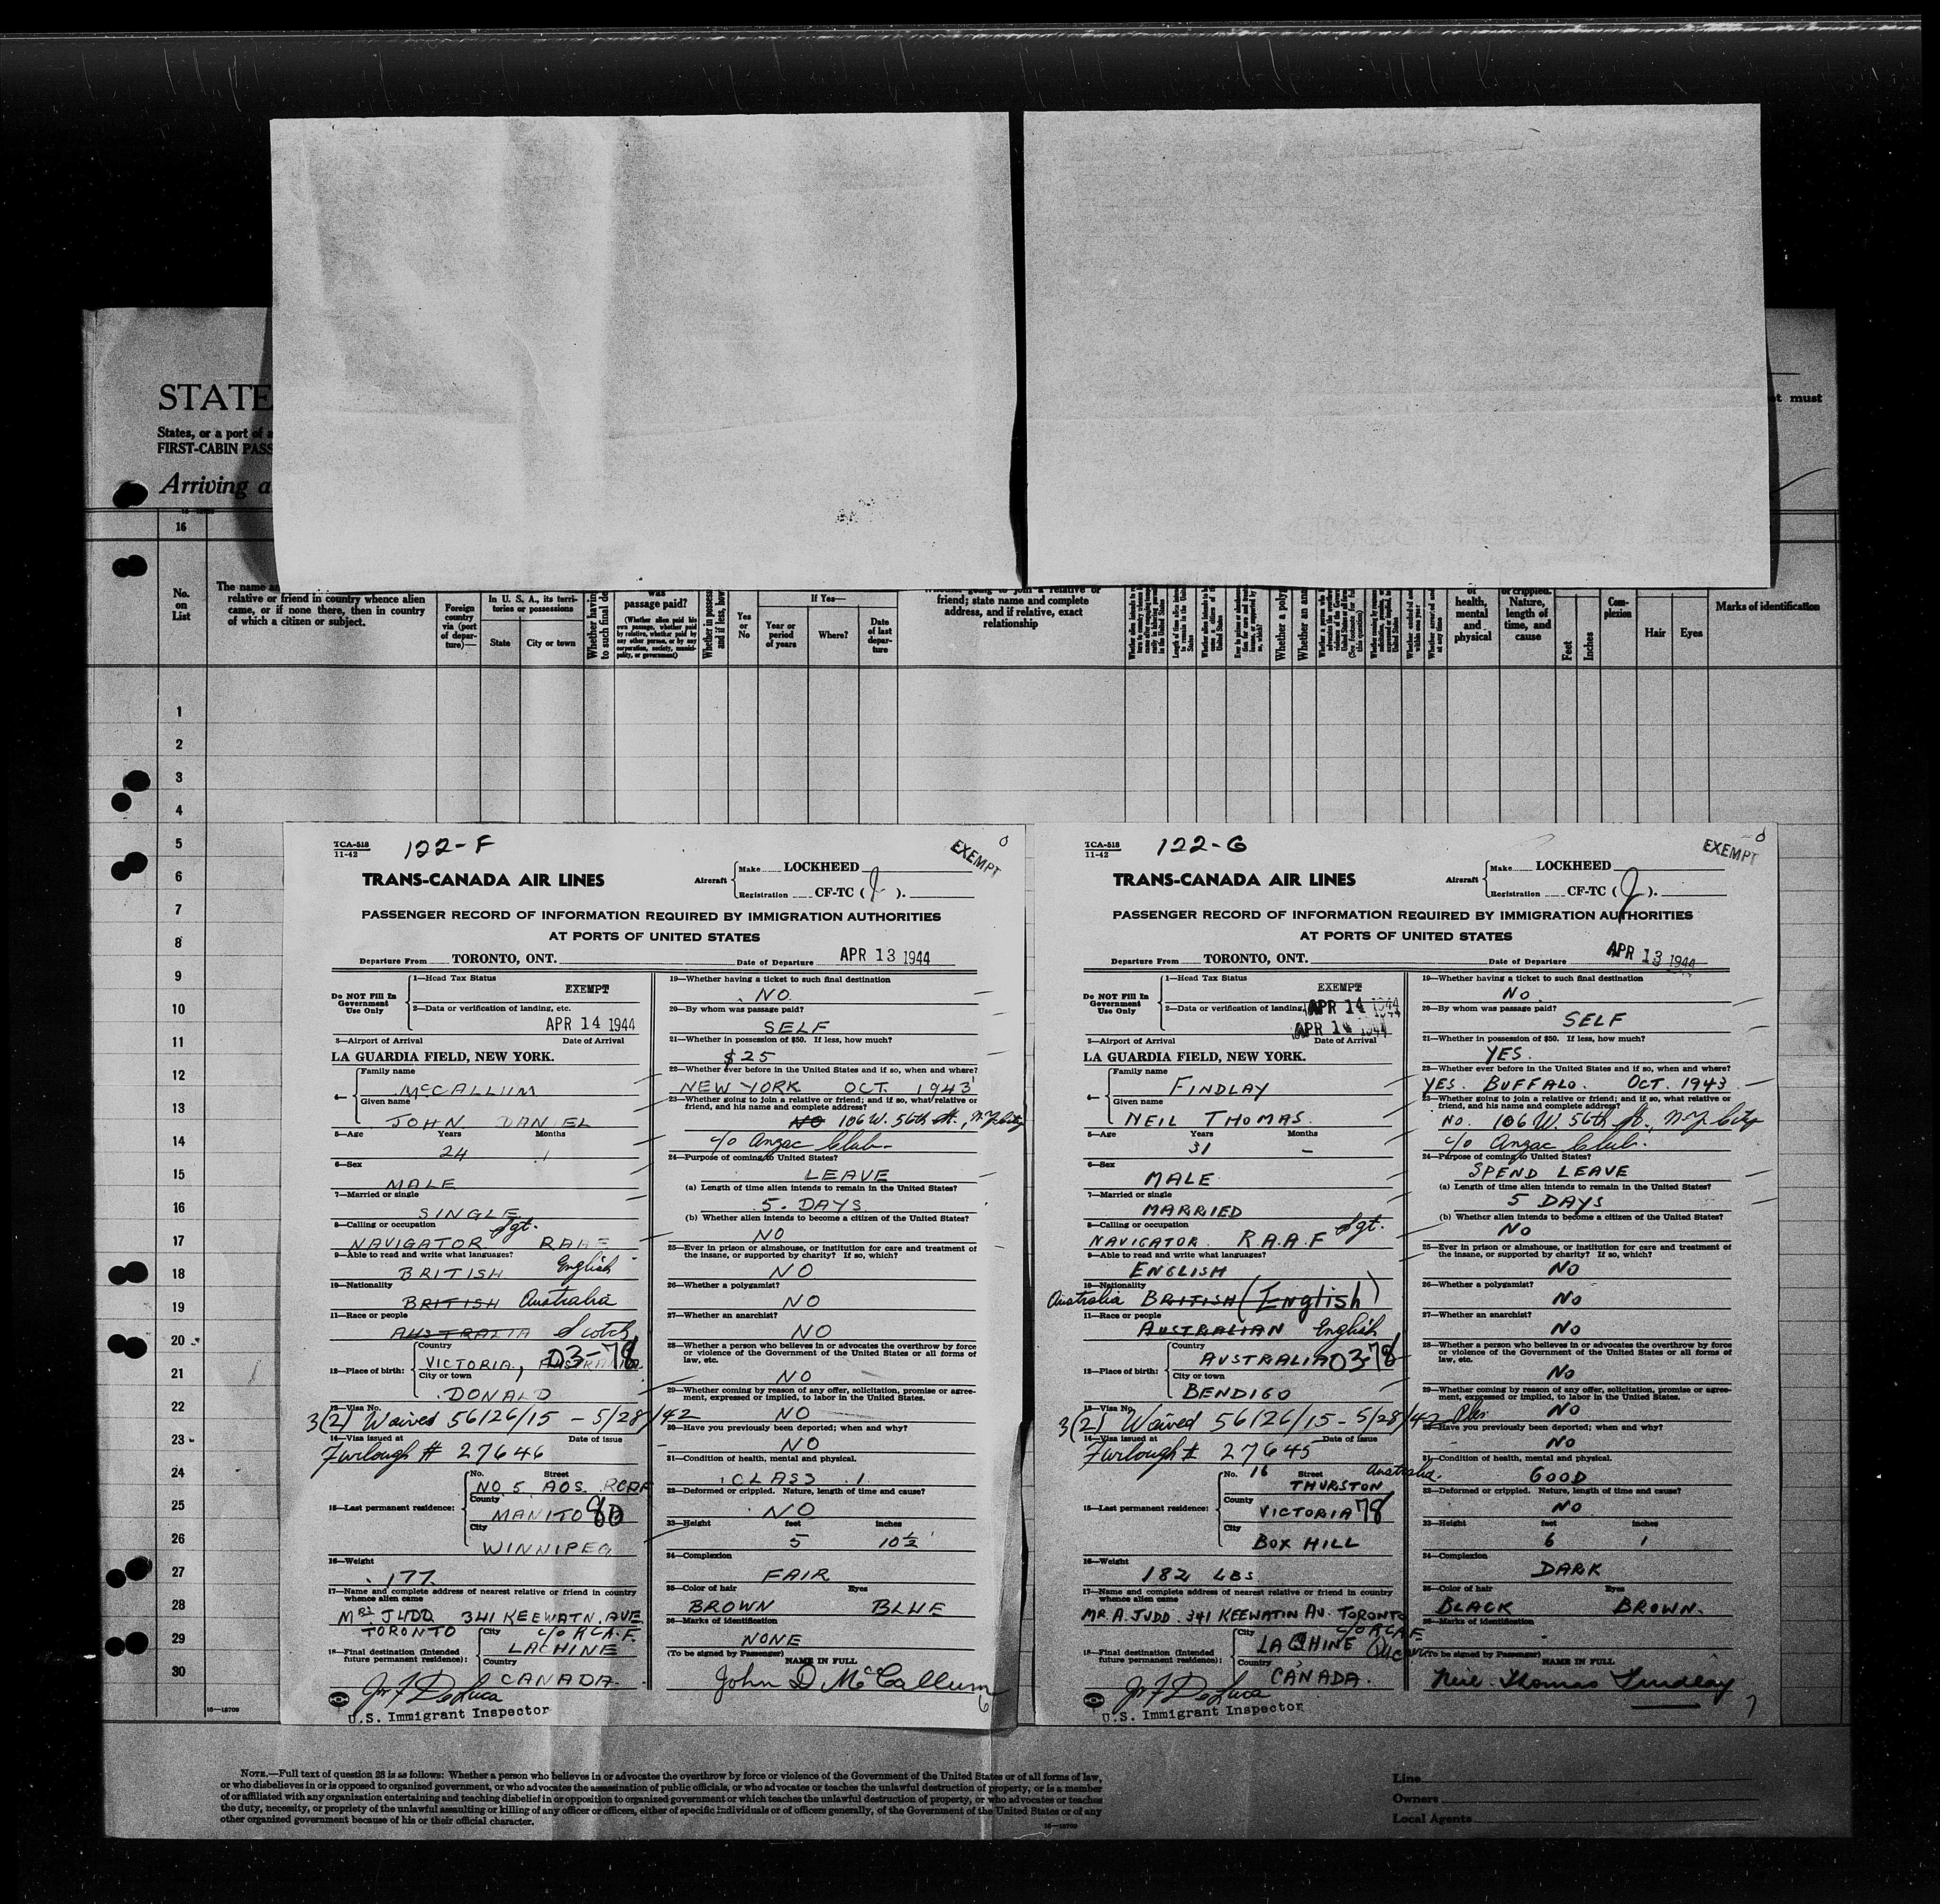 STATE
States, or a port of a
FIRST-CABIN PASS
Arriving a
t must
16
No. on List
The name an
relative or friend in country whence alien
came, or if none there, then in country
of which a citizen or subject.
Foreign country via (port of depar- ture)—
In U. S. A., its terri- tories or possessions
State
City or town
Whether having
to such final de
was
passage paid?
(Whether alien paid his own passage, whether paid by relative, whether paid by any other person, or by any corporation, society, munici- pality, or government)
Whether in possess
and if less, how
Yes or No
If Yes—
Year or period of years
Where?
Date of last depar- ture
friend; state name and complete
address, and if relative, exact
relationship
Whether a polyg
Whether an ana
of health, mental and physical
or crippled. Nature, length of time, and cause
Feet
Inches
Com- plexion
Hair
Eyes
Marks of identification
1
2
3
4
5
6
7
8
9
10
11
12
13
14
15
16
17
18
19
20
21
22
23
24
25
26
27
28
29
30
16—18709
TCA-518
11-42
122-F
EXEMPT
0
TRANS-CANADA AIR LINES
Aircraft
Make LOCKHEED
Registration CF-TC (J).
PASSENGER RECORD OF INFORMATION REQUIRED BY IMMIGRATION AUTHORITIES
AT PORTS OF UNITED STATES
Departure From TORONTO, ONT. Date of Departure APR 13 1944
Do NOT Fill In Government Use Only
1—Head Tax Status
EXEMPT
2—Data or verification of landing, etc.
APR 14 1944
3—Airport of Arrival Date of Arrival
LA GUARDIA FIELD, NEW YORK.
4— Family name
McCALLUM
Given name
JOHN DANIEL
5—Age Years Months
24 1
6—Sex
MALE
7—Married or single
SINGLE
8—Calling or occupation Sgt.
NAVIGATOR RAAF
9—Able to read and write what languages?
BRITISH English
10—Nationality
BRITISH Australia
11—Race or people
AUSTRALIA Scotch
12—Place of birth:
Country
VICTORIA, AUSTRALIA. 03-78
City or town
DONALD
13—Visa No.
3(2) Waived 56126/15 - 5/28/42
14—Visa issued at Date of issue
Furlough # 27646
15—Last permanent residence:
No. Street
NO 5 AOS RCAF
County
MANITO 80
City
WINNIPEG
16—Weight
177
17—Name and complete address of nearest relative or friend in country
whence alien came
MRS JUDD 341 KEEWATN. AVE
TORONTO
c/o R.C.A.F.
18—Final destination (Intended
future permanent residence):
City
LACHINE
Country
CANADA.
Jr F DeLuca
U.S. Immigrant Inspector
19—Whether having a ticket to such final destination
NO
20—By whom was passage paid?
SELF
21—Whether in possession of $50. If less, how much?
$25
22—Whether ever before in the United States and if so, when and where?
NEW YORK OCT. 1943
23—Whether going to join a relative or friend; and if so, what relative or
friend, and his name and complete address?
NO 106 W. 56th St., N.Y. City
c/o Anzac Club
24—Purpose of coming to United States?
LEAVE
(a) Length of time alien intends to remain in the United States?
5. DAYS
(b) Whether alien intends to become a citizen of the United States?
NO
25—Ever in prison or almshouse, or institution for care and treatment of
the insane, or supported by charity? If so, which?
NO
26—Whether a polygamist?
NO
27—Whether an anarchist?
NO
28—Whether a person who believes in or advocates the overthrow by force
or violence of the Government of the United States or all forms of
law, etc.
NO
29—Whether coming by reason of any offer, solicitation, promise or agree-
ment, expressed or implied, to labor in the United States.
NO
30—Have you previously been deported; when and why?
NO
31—Condition of health, mental and physical.
CLASS 1.
32—Deformed or crippled. Nature, length of time and cause?
NO
33—Height feet inches
5 10½
34—Complexion
FAIR
35—Color of hair Eyes
BROWN BLUE
36—Marks of identification
NONE
(To be signed by Passenger) NAME IN FULL
John D McCallum
6
TCA-518
11-42
122-G
EXEMPT
0
TRANS-CANADA AIR LINES
Aircraft
Make LOCKHEED
Registration CF-TC (J).
PASSENGER RECORD OF INFORMATION REQUIRED BY IMMIGRATION AUTHORITIES
AT PORTS OF UNITED STATES
Departure From TORONTO, ONT. Date of Departure APR 13 1944
Do NOT Fill In Government Use Only
1—Head Tax Status
EXEMPT
2—Data or verification of landing, APR 14 1944
APR 14 1944
3—Airport of Arrival Date of Arrival
LA GUARDIA FIELD, NEW YORK.
4— Family name
FINDLAY
Given name
NEIL THOMAS.
5—Age Years Months
31 –
6—Sex
MALE
7—Married or single
MARRIED
8—Calling or occupation Sgt.
NAVIGATOR. R.A.A.F
9—Able to read and write what languages?
ENGLISH
10—Nationality
Australia BRITISH (English)
11—Race or people
AUSTRALIAN English
12—Place of birth:
Country
AUSTRALIA 03-78
City or town
BENDIGO
13—Visa No.
3(2) Waived 56126/15 - 5/28/42
14—Visa issued at Date of issue
Furlough # 27645
15—Last permanent residence:
No. 16 Street Australia.
THURSTON
County
VICTORIA 78
City
BOX HILL
16—Weight
182 LBS.
17—Name and complete address of nearest relative or friend in country
whence alien came
MR. A. JUDD. 341 KEEWATIN AV. TORONTO
c/o R.C.A.F.
18—Final destination (Intended
future permanent residence):
City
LACHINE
Country
CANADA.
Jr F DeLuca
U.S. Immigrant Inspector
19—Whether having a ticket to such final destination
NO.
20—By whom was passage paid?
SELF
21—Whether in possession of $50. If less, how much?
YES.
22—Whether ever before in the United States and if so, when and where?
YES. BUFFALO. OCT. 1943
23—Whether going to join a relative or friend; and if so, what relative or
friend, and his name and complete address?
NO. 106 W. 56th St., N.Y. City
c/o Anzac Club.
24—Purpose of coming to United States?
SPEND LEAVE
(a) Length of time alien intends to remain in the United States?
5 DAYS
(b) Whether alien intends to become a citizen of the United States?
NO
25—Ever in prison or almshouse, or institution for care and treatment of
the insane, or supported by charity? If so, which?
NO
26—Whether a polygamist?
NO
27—Whether an anarchist?
NO
28—Whether a person who believes in or advocates the overthrow by force
or violence of the Government of the United States or all forms of
law, etc.
NO
29—Whether coming by reason of any offer, solicitation, promise or agree-
ment, expressed or implied, to labor in the United States.
NO
30—Have you previously been deported; when and why?
NO
31—Condition of health, mental and physical.
GOOD
32—Deformed or crippled. Nature, length of time and cause?
NO
33—Height feet inches
6 1
34—Complexion
DARK
35—Color of hair Eyes
BLACK BROWN.
36—Marks of identification
(To be signed by Passenger) NAME IN FULL
Neil Thomas Findlay
7
NOTE.—Full text of question 28 is as follows: Whether a person who believes in or advocates the overthrow by force or violence of the Government of the United States or of all forms of law,
or who disbelieves in or is opposed to organized government, or who advocates the assassination of public officials, or who advocates or teaches the unlawful destruction of property, or is a member
of or affiliated with any organization entertaining and teaching disbelief in or opposition to organized government or which teaches the unlawful destruction of property, or who advocates or teaches
the duty, necessity, or propriety of the unlawful assaulting or killing of any officer or officers, either of specific individuals or of officers generally, of the Government of the United States or of any
other organized government because of his or their official character.
16—18709
Line
Owners
Local Agents